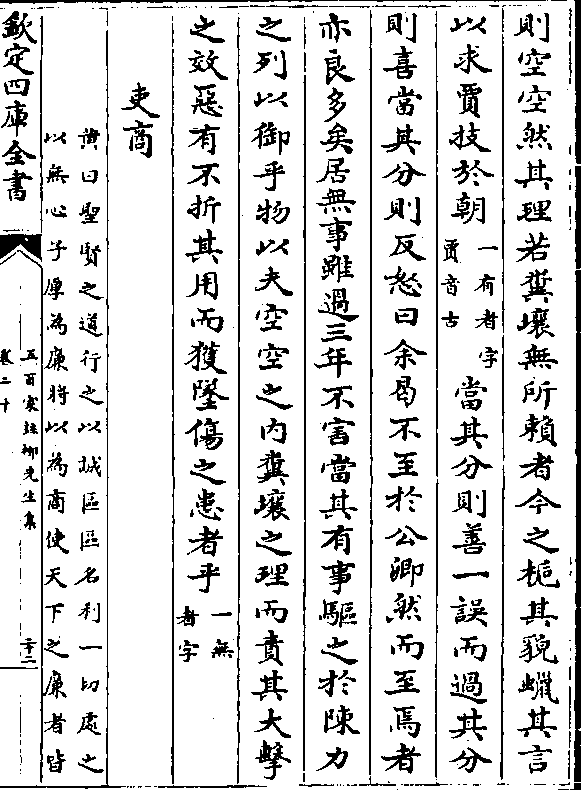 則空空然其理若糞壤無所賴者今之梔其貌蠟其言
以求賈技於朝一有者字賈音古當其分則善一誤而過其分
則喜當其分則反怒曰余曷不至於公卿然而至焉者
亦良多矣居無事雖過三年不害當其有事驅之於陳力
之列以御乎物以夫空空之内糞壤之理而責其大擊
之效惡有不折其用而獲墜傷之患者乎一無者字
吏商
黄曰聖賢之道行之以誠區區名利一切處之
以無心子厚為廉將以為商使天下之廉者皆
欽定四庫全書
五百家註柳先生集
卷二十
二十二